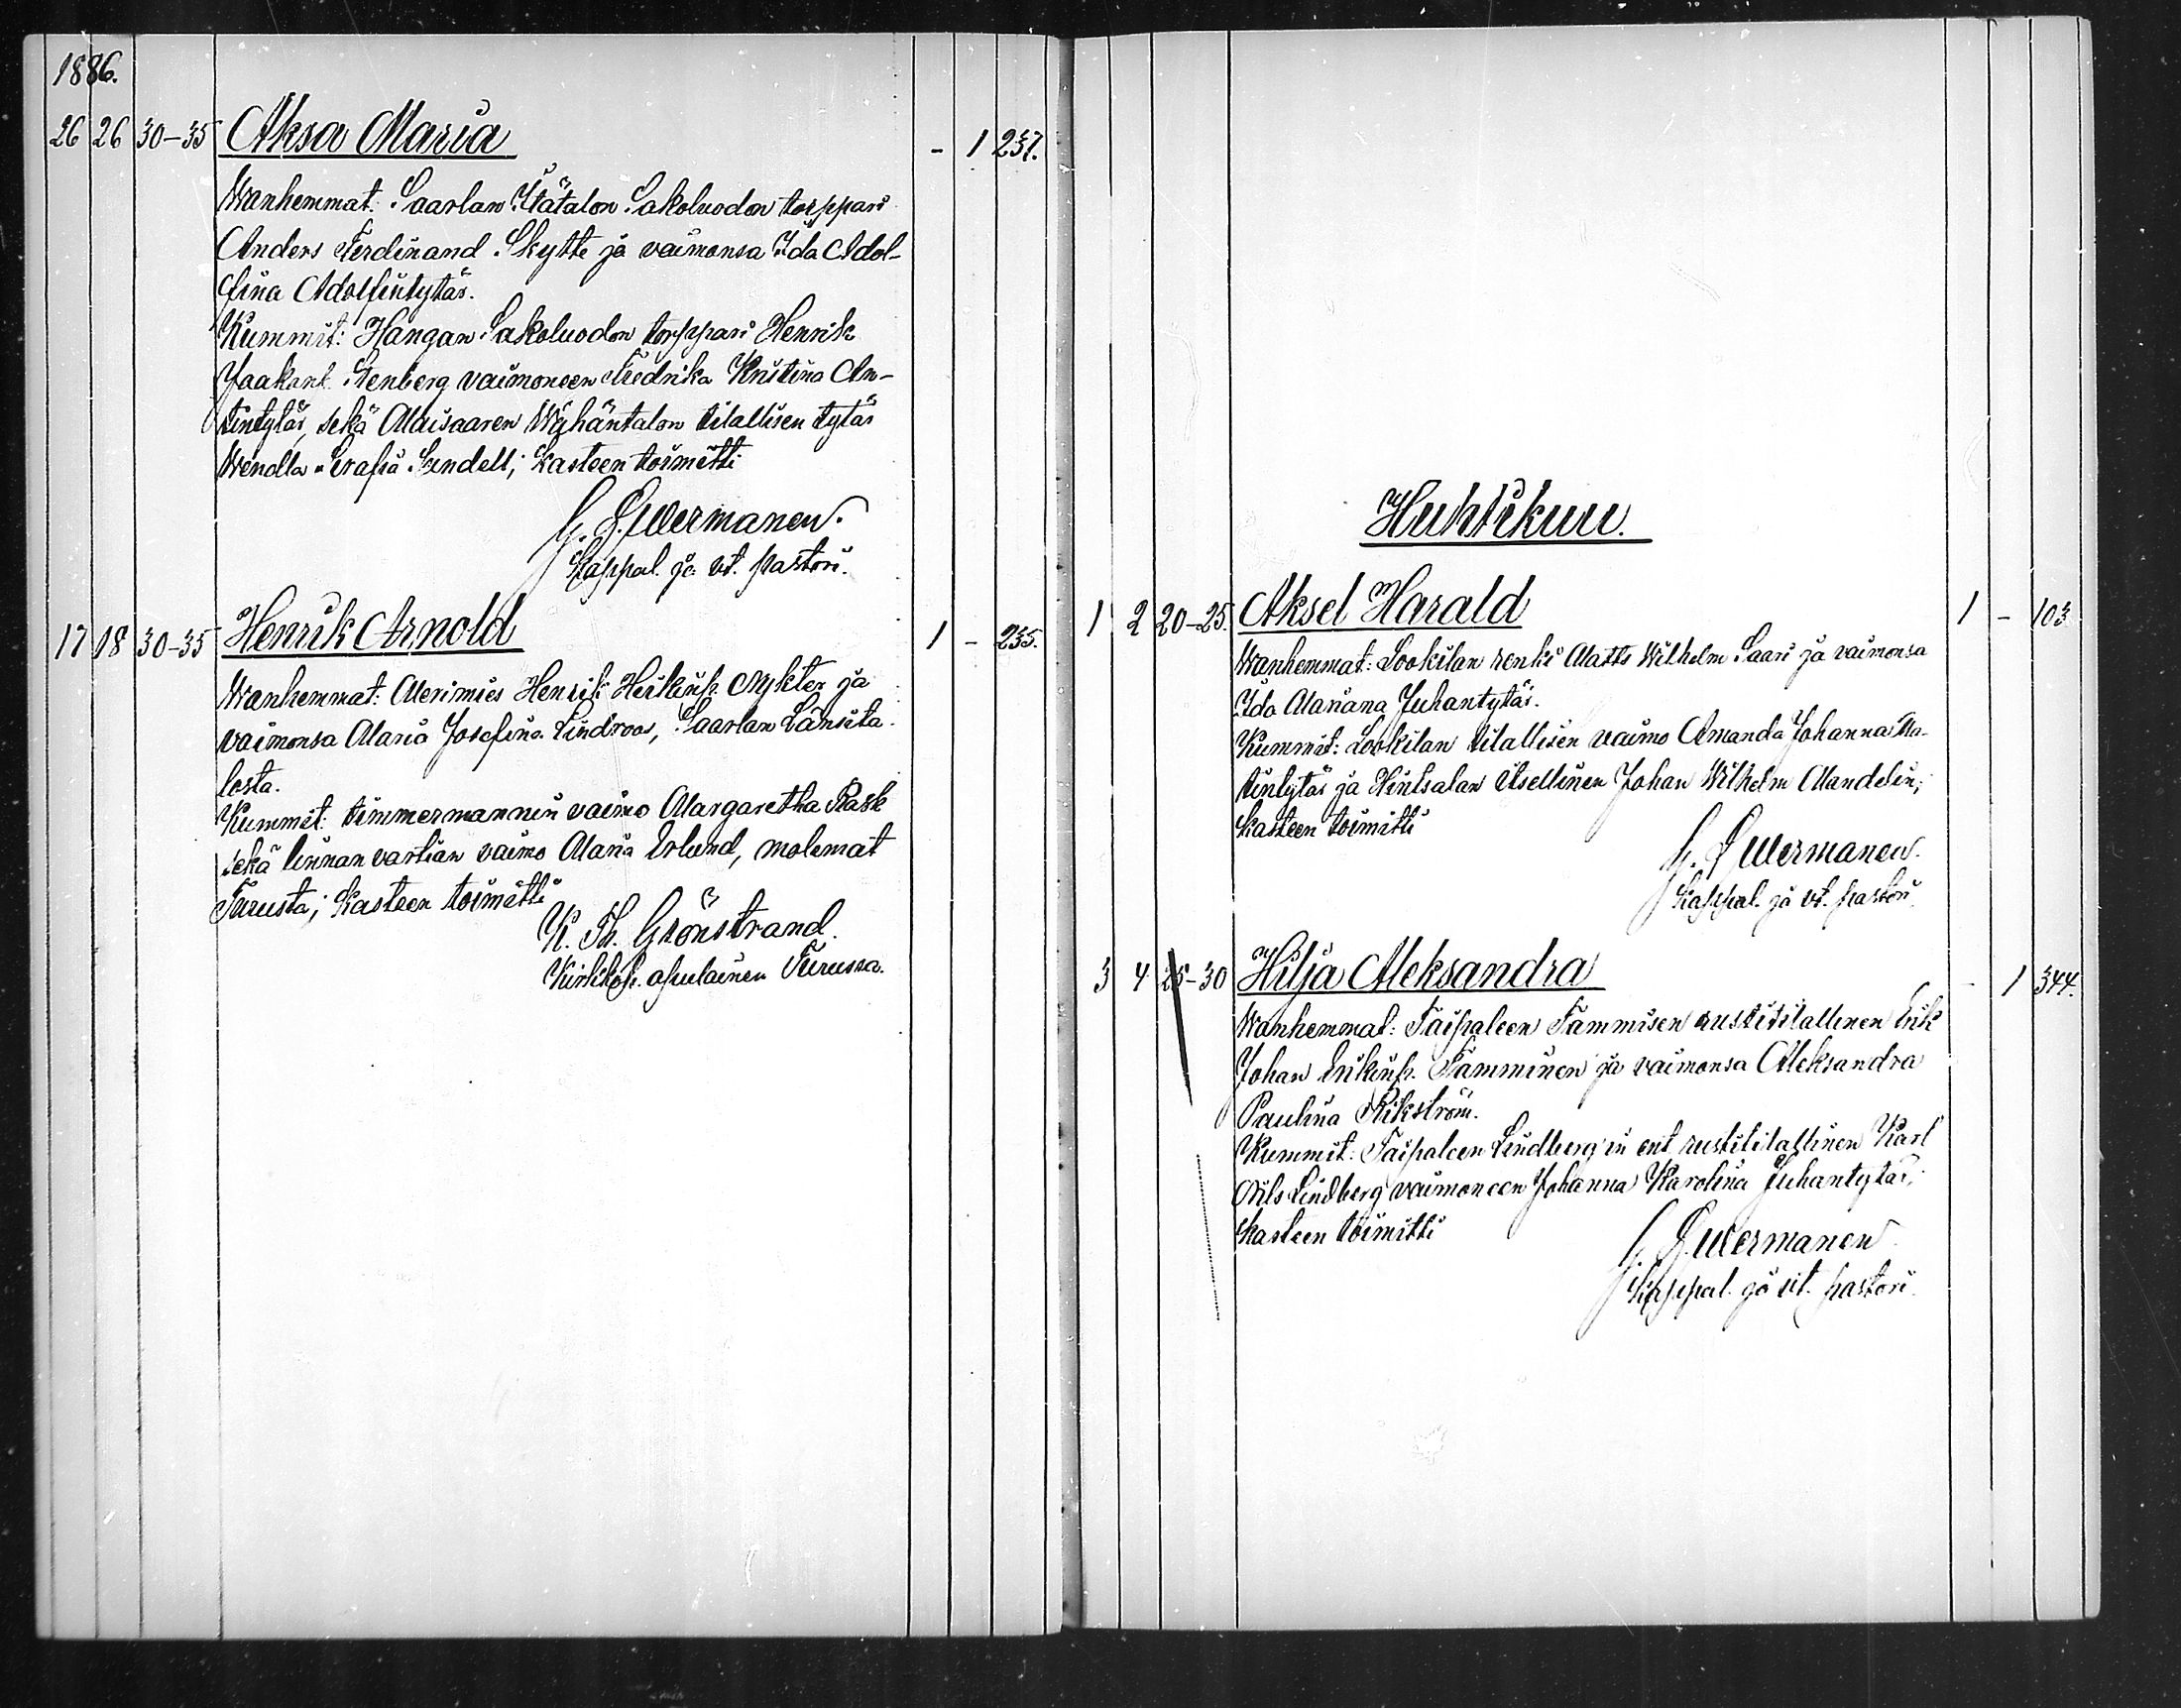 1886.
26 26 30-35 Aksa Maria - 1 237.
Wanhemmat: Saarlan Ylätalon Sakoluodon torppari
Anders Ferdinand Skytte ja vaimonsa Ida Adol-
fina Adolfintytär.
Kummit: Hangan Sakoluodon torppari Henrik
Jaakop Stenberg vaimoneen Fredrika Kristina An-
tintytär, sekä Maisaaren Wähäntalon tilallisen tytär
Wendla Serafia Sundell; kasteen toimitti
Wermanen.
Kappal. ja vt. pastori.
17 18 30-35 Henrik Arnold 1 - 235.
Wanhemmat: Merimies Henrik Heikinp. Nykter ja
vaimonsa Maria Josefina Lindroos, Saarlan Länsita-
losta.
Kummit: timmermannin vaimo Margaretha Rask
sekä linnan vartian vaimo Maria Erlund, molemat
Turusta; kasteen toimitti
K. Th. Grönstrand.
Kirkkoh. apulainen Turussa.
Huhtikuu.
1 2 20-25. Aksel Harald 1 - 103
Wanhemmat: Lookilan renki Matts Wilhelm Saari ja vaimonsa
Ida Mariana Juhantytär.
Kummit: Lookilan tilallisen vaimo Amanda Johanna Ma-
tintytär ja Hintsalan itsellinen Johan Wilhelm Mandelin;
kasteen toimitti
Wermanen.
Kappal. ja vt. pastori.
3 4 25-30 Hilja Aleksandra - 1 344.
Wanhemmat: Taipaleen Tammisen rustitilallinen Erik
Johan Erikinp. Tamminen ja vaimonsa Aleksandra
Paulina Rikström.
Kummit: Taipaleen Lindberg'in ent rustitilallinen Karl
Nils Lindberg vaimoneen Johanna Karolina Juhantytär;
kasteen toimitti
Wermanen
Kappal. ja vt. pastori.